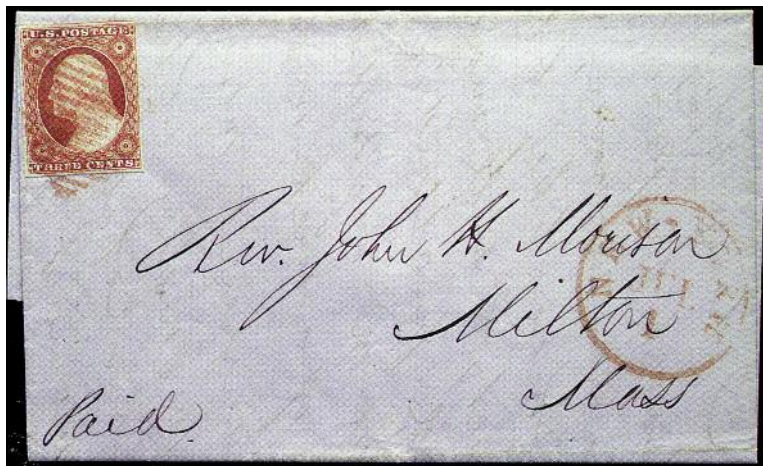 U.S. POSTAGE
THREE CENTS
Rev. John H. Morison
Milton
Mass
Paid
NEW
JUL
1